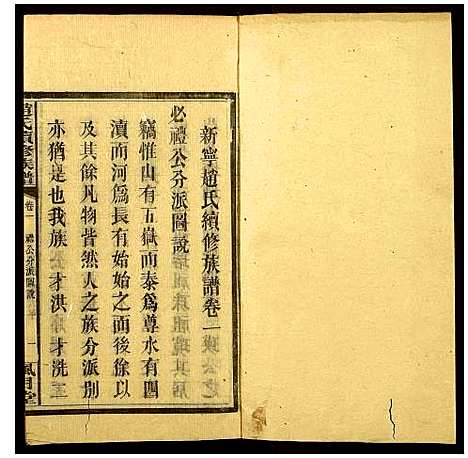 新寧趙氏續修族譜卷一
必禮公分派圖說
竊惟山有五嶽而泰爲尊水有四
瀆而河爲長有始始之而後徐以
及其餘凡物皆然人之族分派別
亦猶是也我族 才洪 才洗
趙氏續修族譜
卷一
禮公分派圖說
一